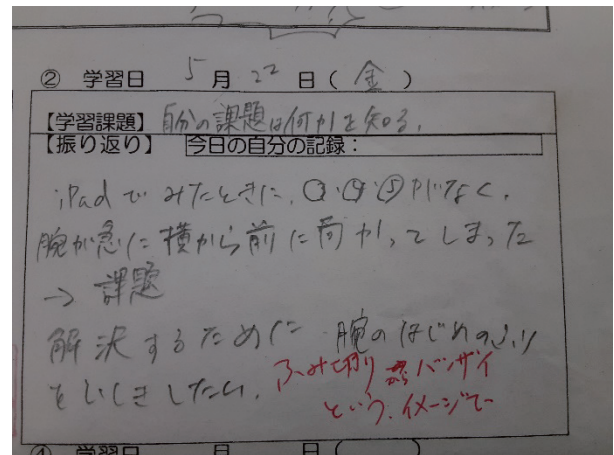 ② 学習日 5月 22日(金)
【学習課題】 自分の課題は何かを知る。
【振り返り】 今日の自分の記録:
iPadでみたときに、③・④・⑤がなく、
腕が急に横から前に向かってしまった
→ 課題
解決するために 腕のはじめのふり
をいしきしたい。 ふみ切りからバンザイ
という、イメージで
学習日 月 日(